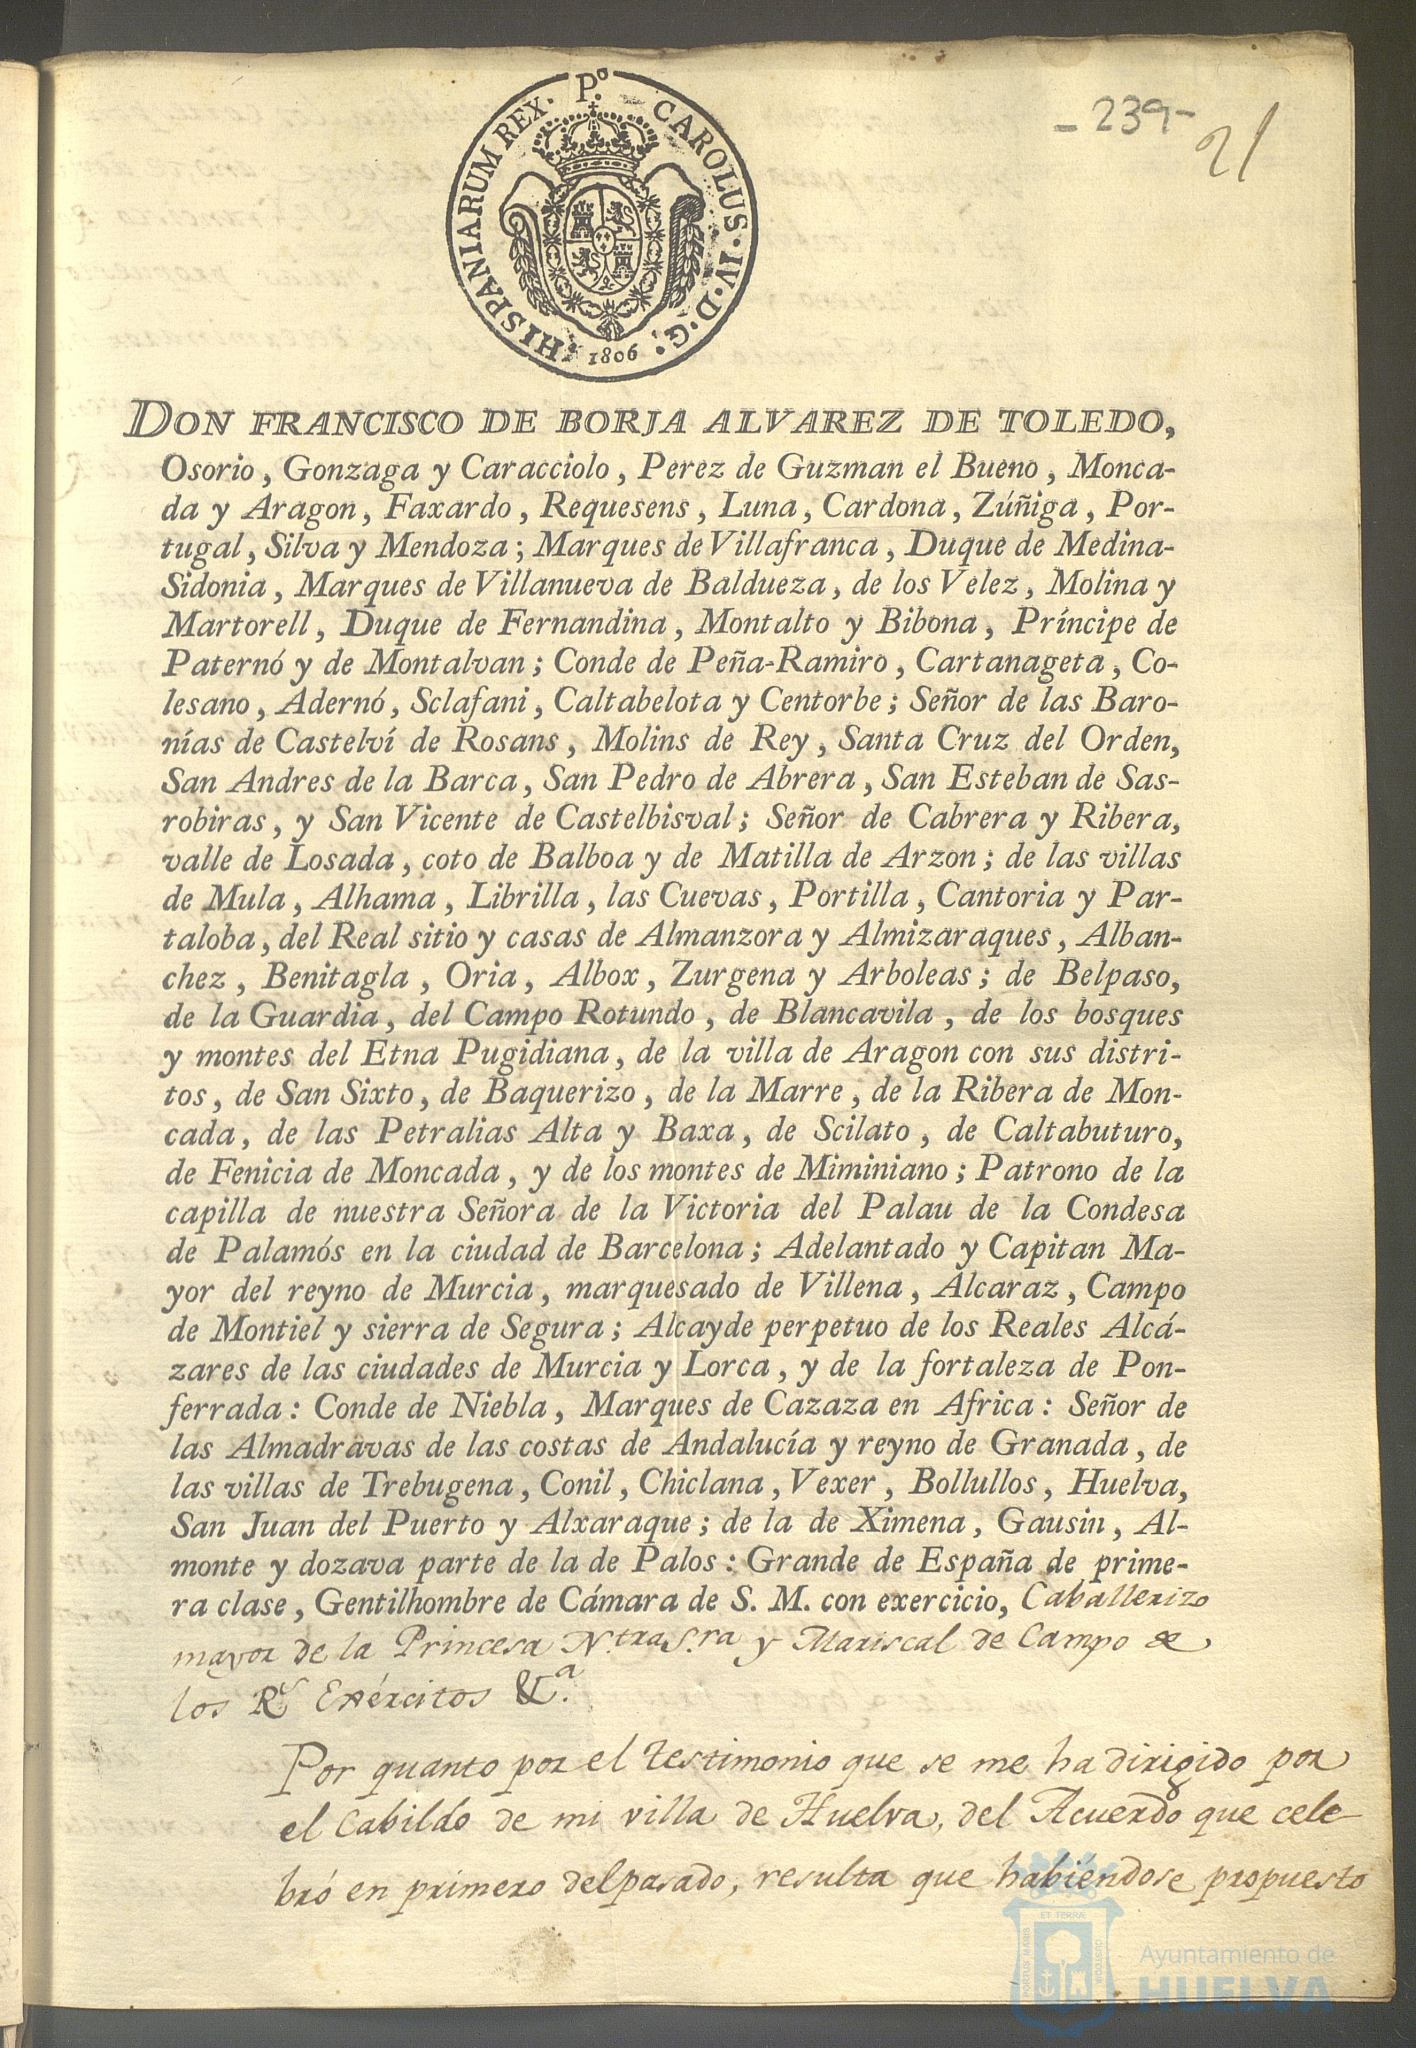 - 239 -
21
Pº CAROLUS·IV·D·G· HISPANIARUM REX·
1806
DON FRANCISCO DE BORJA ALVAREZ DE TOLEDO,
Osorio, Gonzaga y Caracciolo, Perez de Guzman el Bueno, Monca-
da y Aragon, Faxardo, Requesens, Luna, Cardona, Zúñiga, Por-
tugal, Silva y Mendoza; Marques de Villafranca, Duque de Medina-
Sidonia, Marques de Villanueva de Baldueza, de los Velez, Molina y
Martorell, Duque de Fernandina, Montalto y Bibona, Príncipe de
Paternó y de Montalvan; Conde de Peña-Ramiro, Cartanageta, Co-
lesano, Adernó, Sclafani, Caltabelota y Centorbe; Señor de las Baro-
nías de Castelví de Rosans, Molins de Rey, Santa Cruz del Orden,
San Andres de la Barca, San Pedro de Abrera, San Esteban de Sas-
robiras, y San Vicente de Castelbisval; Señor de Cabrera y Ribera,
valle de Losada, coto de Balboa y de Matilla de Arzon; de las villas
de Mula, Alhama, Librilla, las Cuevas, Portilla, Cantoria y Par-
taloba, del Real sitio y casas de Almanzora y Almizaraques, Alban-
chez, Benitagla, Oria, Albox, Zurgena y Arboleas; de Belpaso,
de la Guardia, del Campo Rotundo, de Blancavila, de los bosques
y montes del Etna Pugidiana, de la villa de Aragon con sus distri-
tos, de San Sixto, de Baquerizo, de la Marre, de la Ribera de Mon-
cada, de las Petralias Alta y Baxa, de Scilato, de Caltabuturo,
de Fenicia de Moncada, y de los montes de Miminiano; Patrono de la
capilla de nuestra Señora de la Victoria del Palau de la Condesa
de Palamós en la ciudad de Barcelona; Adelantado y Capitan Ma-
yor del reyno de Murcia, marquesado de Villena, Alcaraz, Campo
de Montiel y sierra de Segura; Alcayde perpetuo de los Reales Alcá-
zares de las ciudades de Murcia y Lorca, y de la fortaleza de Pon-
ferrada: Conde de Niebla, Marques de Cazaza en Africa: Señor de
las Almadravas de las costas de Andalucía y reyno de Granada, de
las villas de Trebugena, Conil, Chiclana, Vexer, Bollullos, Huelva,
San Juan del Puerto y Alxaraque; de la de Ximena, Gausin, Al-
monte y dozava parte de la de Palos: Grande de España de prime-
ra clase, Gentilhombre de Cámara de S. M. con exercicio, Caballerizo
mayor de la Princesa N.tra S.ra y Mariscal de Campo de
los Rs Exércitos &ª.
Por quanto por el testimonio que se me ha dirigido por
el Cabildo de mi villa de Huelva, del Acuerdo que cele-
bró en primero del pasado, resulta que habiéndose propuesto
PORTUS MARIS ET TERRÆ CUSTODIA
Ayuntamiento de
HUELVA